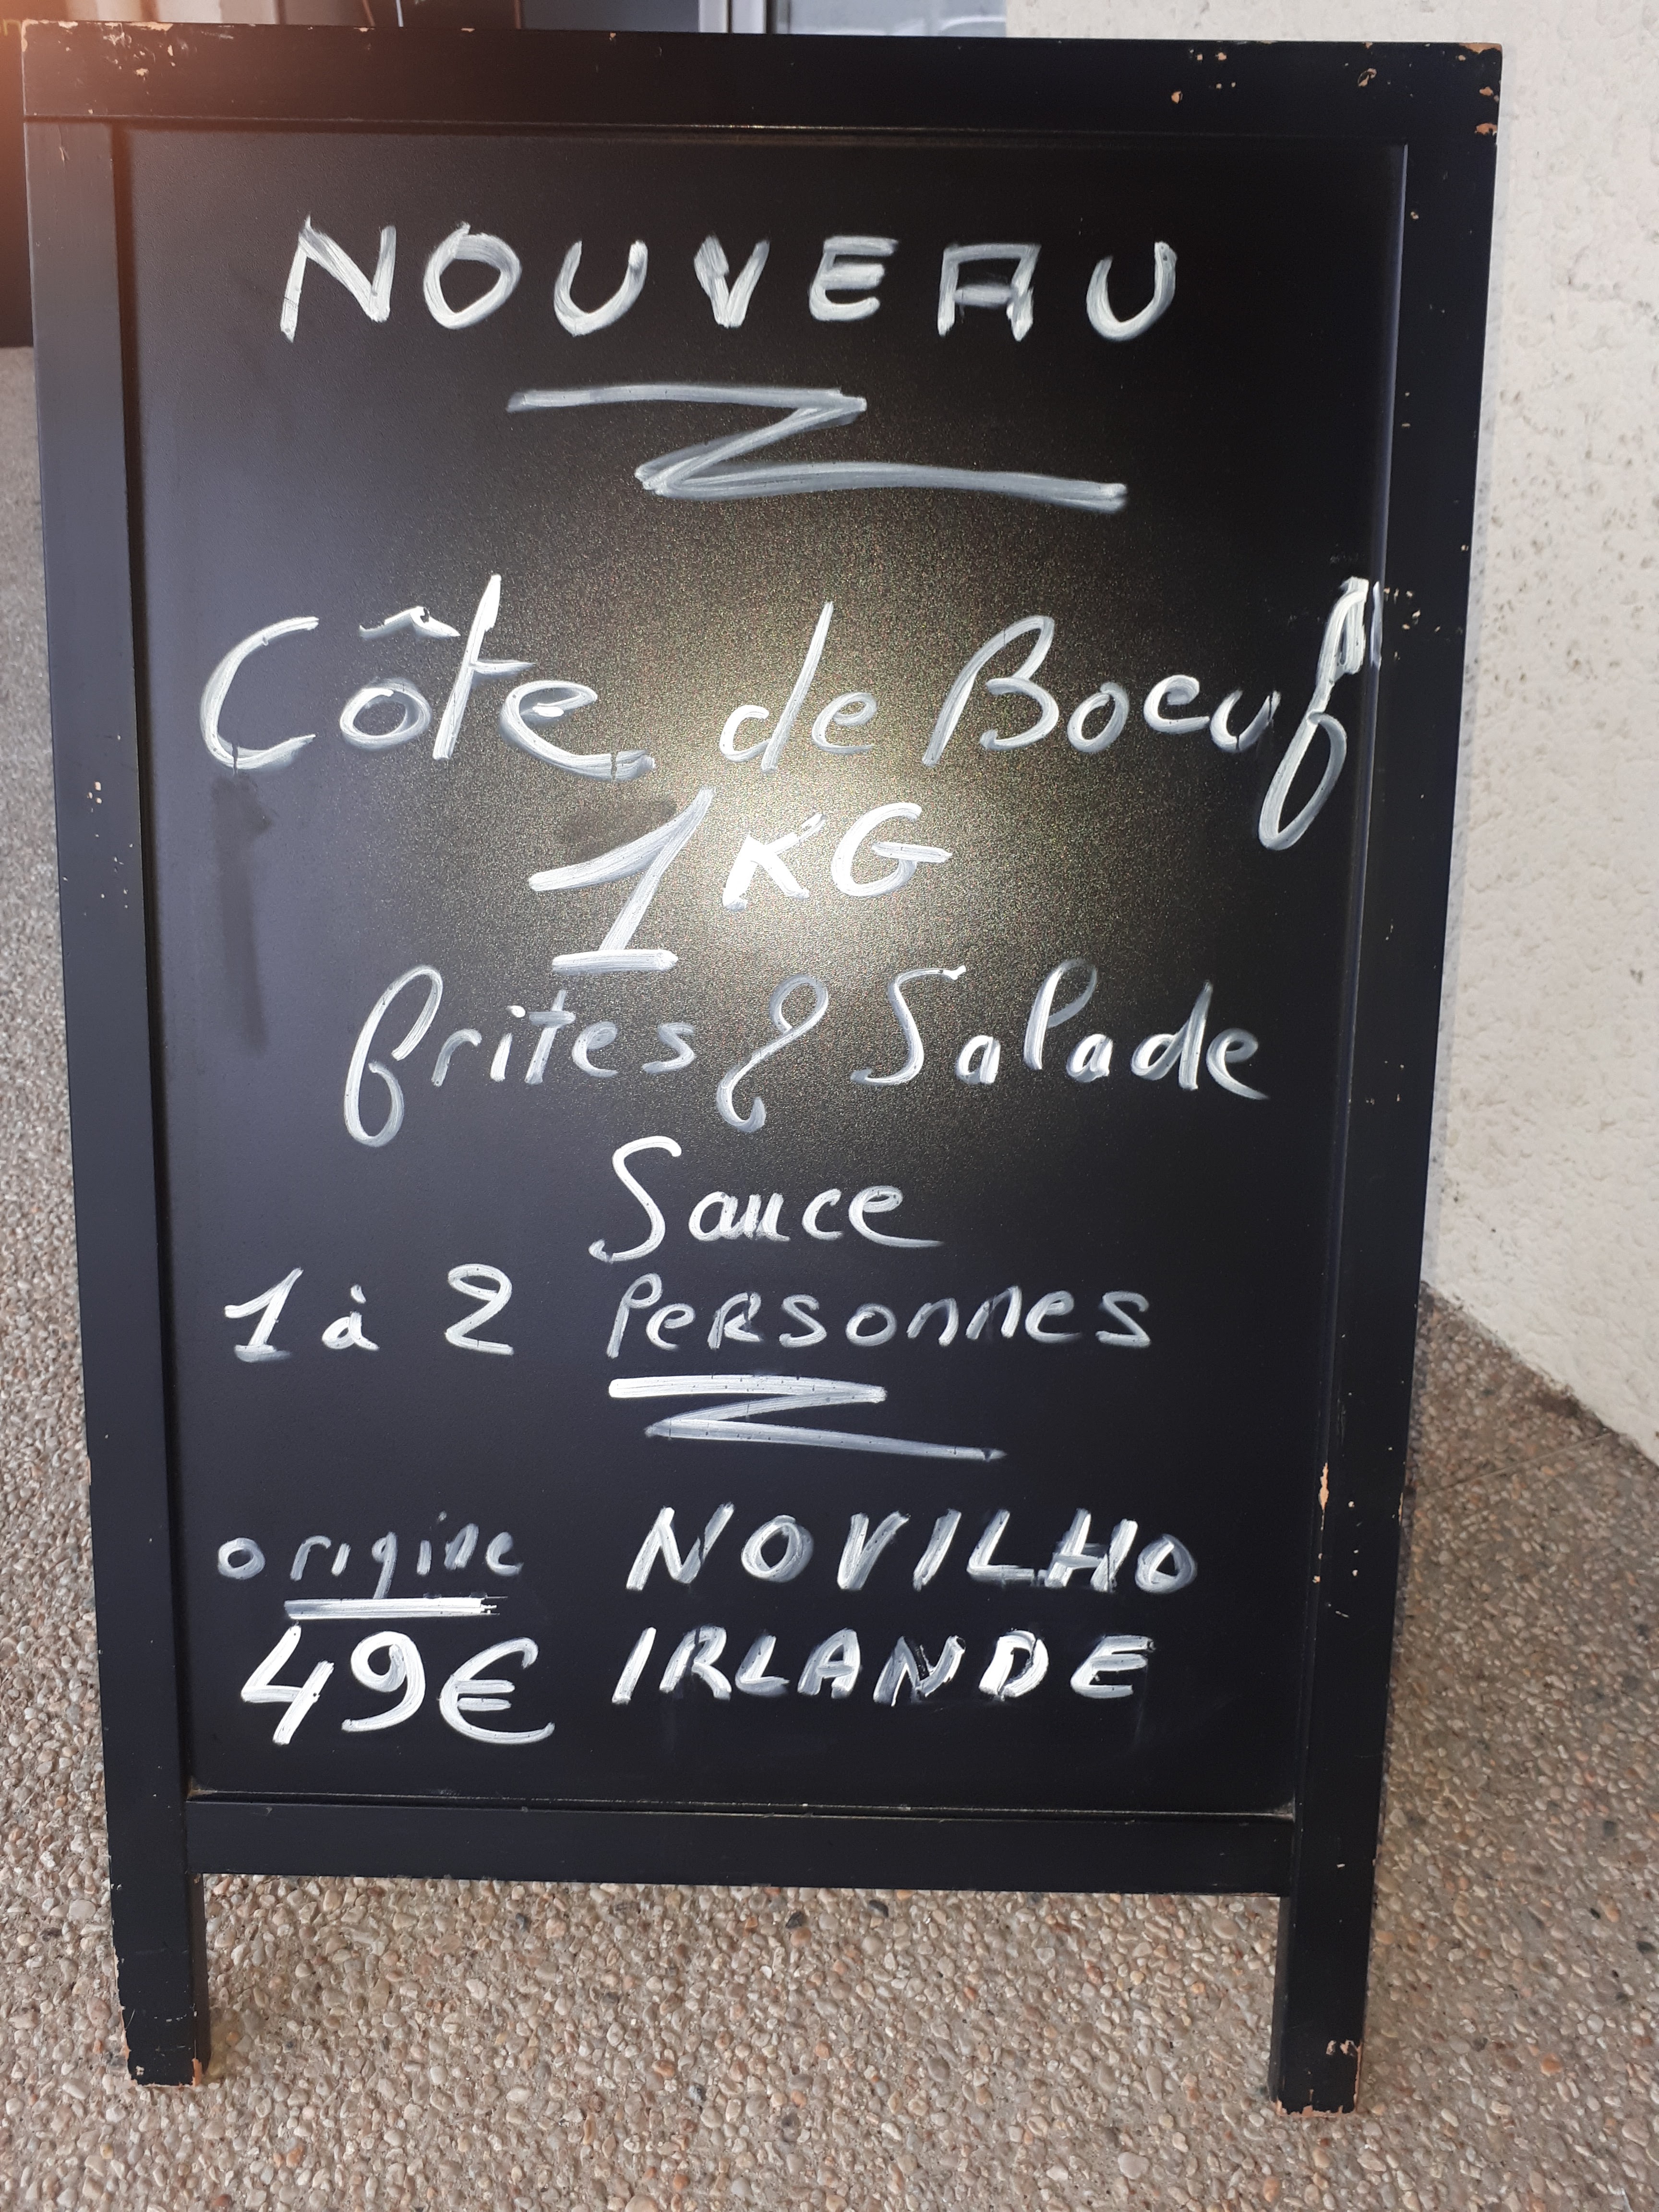 NOUVEAU
Côte de Boeuf
1 KG
frites & Salade
Sauce
1 à 2 Personnes
origine NOVILHO
49€ IRLANDE